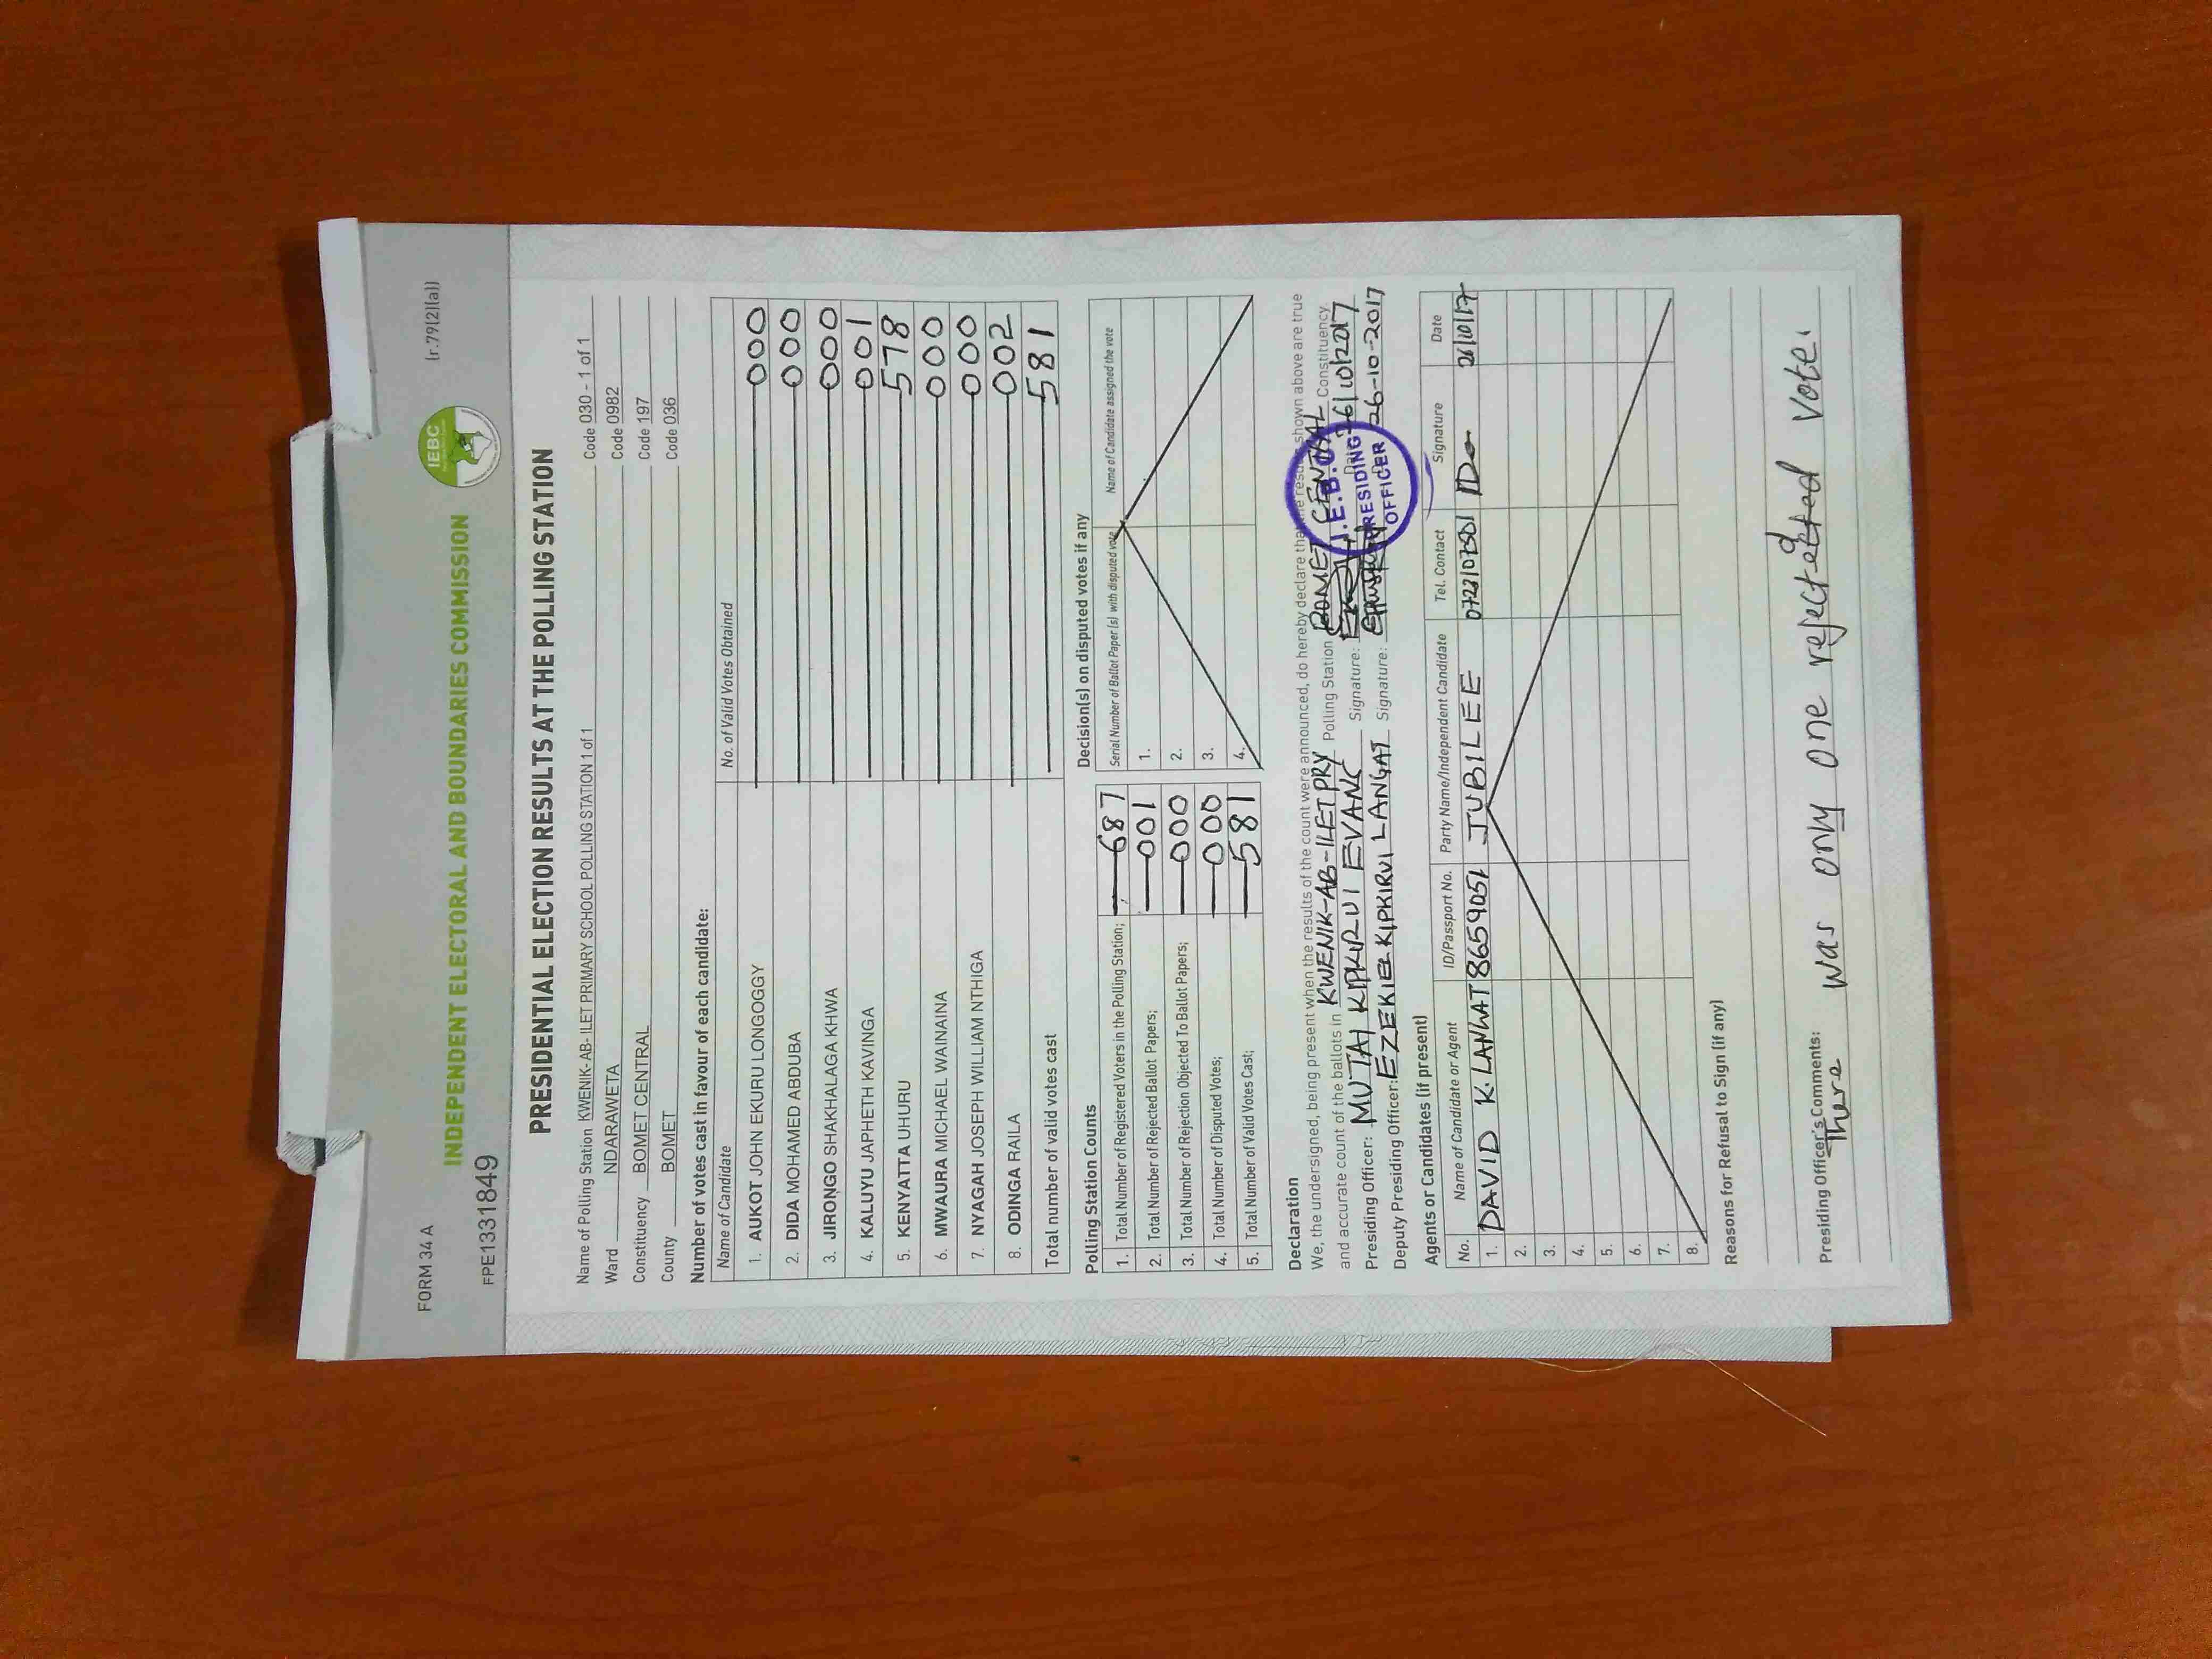 FORM 34 A
(r.79(2)(a))
IEBC
INDEPENDENT ELECTORAL AND BOUNDARIES COMMISSION
FPE1331849
PRESIDENTIAL ELECTION RESULTS AT THE POLLING STATION
Name of Polling Station KWENIK- AB- ILET PRIMARY SCHOOL POLLING STATION 1 of 1 Code 030 - 1 of 1
Ward NDARAWETA Code 0982
Constituency BOMET CENTRAL Code 197
County BOMET Code 036
Number of votes cast in favour of each candidate:
Name of Candidate No. of Valid Votes Obtained
1. AUKOT JOHN EKURU LONGOGGY 000
2. DIDA MOHAMED ABDUBA 000
3. JIRONGO SHAKHALAGA KHWA 000
4. KALUYU JAPHETH KAVINGA 001
5. KENYATTA UHURU 578
6. MWAURA MICHAEL WAINAINA 000
7. NYAGAH JOSEPH WILLIAM NTHIGA 000
8. ODINGA RAILA 002
Total number of valid votes cast 581
Polling Station Counts
1. Total Number of Registered Voters in the Polling Station; 687
2. Total Number of Rejected Ballot Papers; 001
3. Total Number of Rejection Objected To Ballot Papers; 000
4. Total Number of Disputed Votes; 000
5. Total Number of Valid Votes Cast; 581
Decision(s) on disputed votes if any
Serial Number of Ballot Paper (s) with disputed vote Name of Candidate assigned the vote
1.
2.
3.
4.
Declaration
We, the undersigned, being present when the results of the count were announced, do hereby declare that the results shown above are true
and accurate count of the ballots in KWENIK-AB-ILET PRY Polling Station BOMET CENTRAL Constituency.
Presiding Officer: MUTAI KIPKIRUI EVANC Signature: Date 26/10/2017
Deputy Presiding Officer: EZEKIEL KIPKIRUI LANGAT Signature: 26-10-2017
I.E.B.C
PRESIDING
OFFICER
Agents or Candidates (if present)
No. Name of Candidate or Agent ID/Passport No. Party Name/Independent Candidate Tel. Contact Signature Date
1. DAVID K. LANGAT 8659051 JUBILEE 0722107501 26/10/17
2.
3.
4.
5.
6.
7.
8.
Reasons for Refusal to Sign (if any)
Presiding Officer's Comments:
There was only one rejected vote.